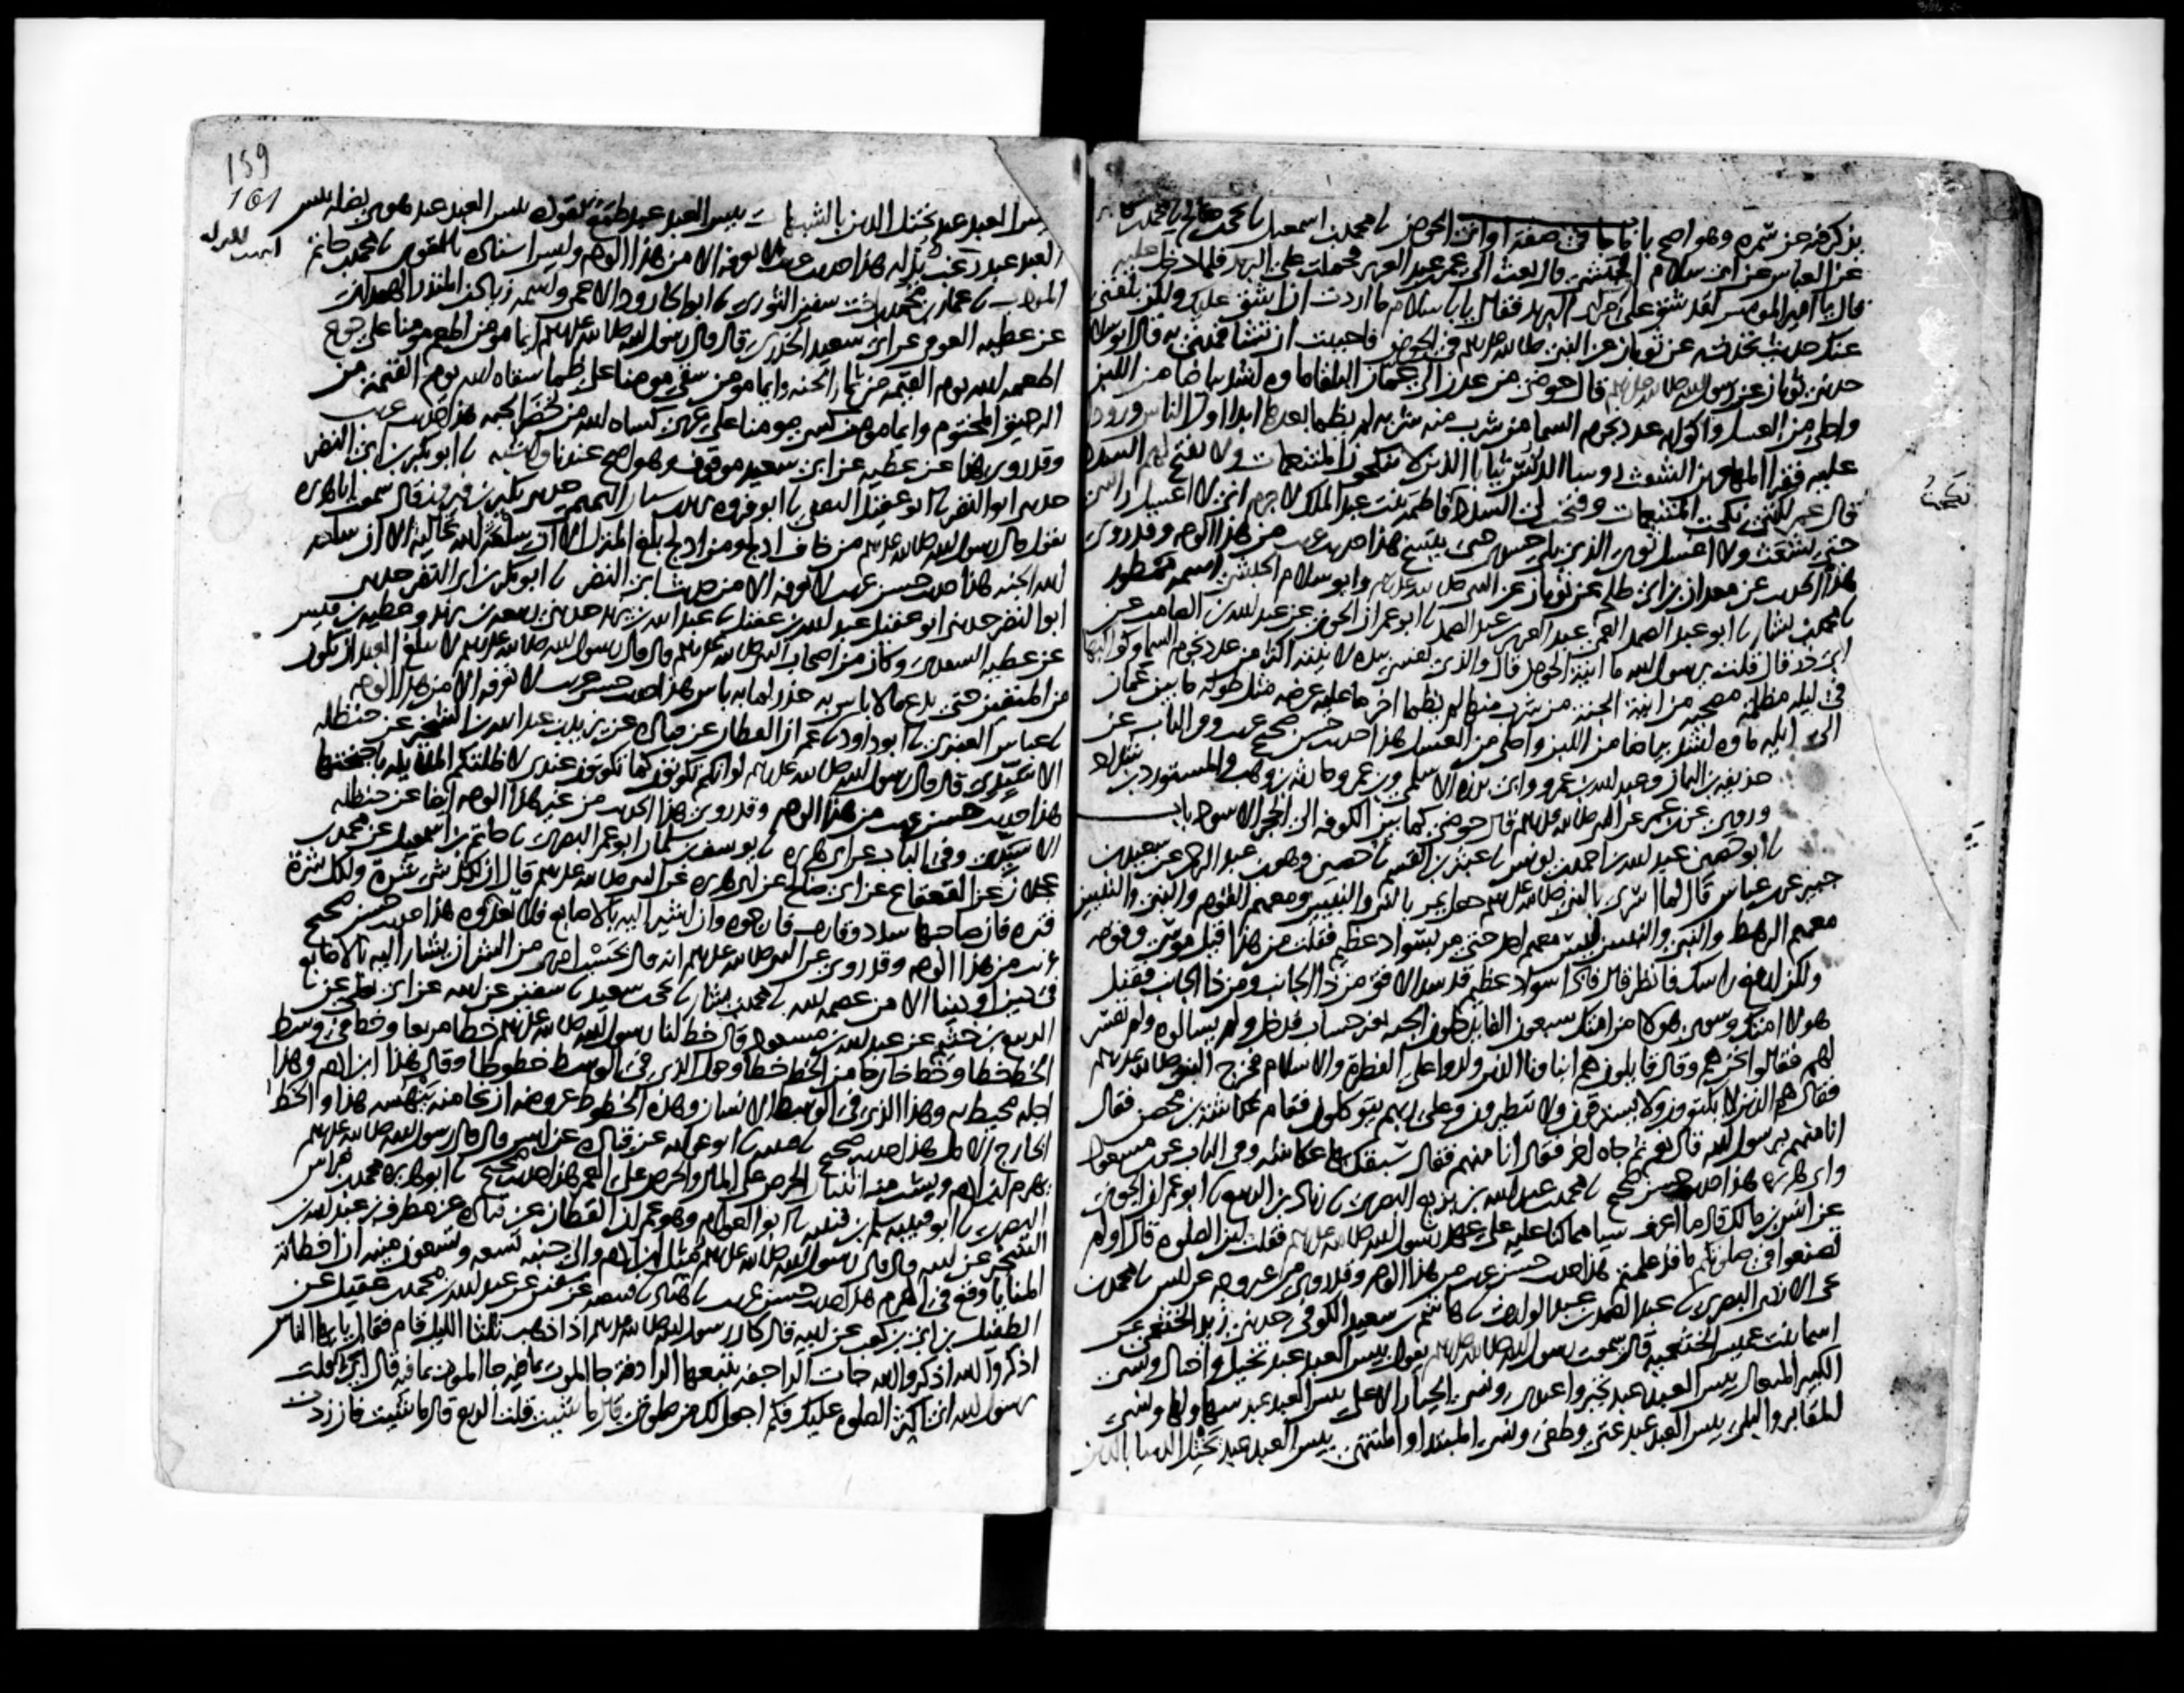 يذكر فيه عن سمرة وهو اصح باب ما جا في صفة اواني الحوض نا محمد بن اسمعيل نا يحيى بن صالح نا محمد بن مهاجر
عن العباس عن ابي سلام الحبشي قال بعث الي عمر بن عبد العزيز فحملت على البريد فلما دخل عليه
قال يا امير المومنين لقد شق علي مركبي البريد فقال يا با سلام ما اردت ان اشق عليك ولكن بلغني
عنك حديث تحدثه عن ثوبان عن النبي صلى الله عليه وسلم في الحوض فاحببت ان تشافهني به قال ابو سلام
حدثني ثوبان عن رسول الله صلى الله عليه وسلم قال حوضي من عدن الى عمان البلقا ماوه اشد بياضا من اللبن
واحلى من العسل واكوابه عدد نجوم السما من شرب منه شربه لم يظما بعدها ابدا اول الناس ورودا
عليه فقرا المهاجرين الشعث روسا الدنس ثيابا الذين لا ينكحون المتنعمات ولا تفتح لهم السدد
قال عمر لكني نكحت المتنعمات وفتحت لي السدد نكحت فاطمة بنت عبد الملك لا جرم اني لا اغسل راسي
حتى يشعث ولا اغسل ثوبي الذي يلي جسدي حتى يتسخ هذا حديث غريب من هذا الوجه وقد روي
هذا الحديث عن معدان بن ابي طلحة عن ثوبان عن النبي صلى الله عليه وسلم وابو سلام الحبشي اسمه ممطور
نا محمد بن بشار نا ابو عبد الصمد العمي عبد العزيز بن عبد الصمد نا ابو عمران الجوني عن عبد الله بن الصامت عن
ابي ذر قال قلت يرسول الله ما انية الحوض قال والذي نفسي بيده لانيته اكثر من عدد نجوم السما وكواكبها
في ليله مظلمة مصحيه من انية الجنة من شرب منها لم يظما اخر ما عليه عرضه مثل طوله ما بين عمان
الى ايله ماوه اشد بياضا من اللبن واحلى من العسل هذا حديث حسن صحيح غريب وفي الباب عن
حذيفه بن اليمان وعبد الله بن عمرو وابي برزه الاسلمي وابن عمر وحارثه بن وهب والمستورد بن شداد
وروي عن ابن عمر عن النبي صلى الله عليه وسلم قال حوضي كما بين الكوفه الى الحجر الاسود باب
نا ابو حصين عبد الله بن احمد بن يونس نا عبثر بن القسم نا حصين وهو بن عبد الرحمن عن سعيد بن
جبير عن بن عباس قال لما اسري بالنبي صلى الله عليه وسلم جعل يمر بالنبي والنبيين ومعهم القوم والنبي والنبيين
معهم الرهط والنبي والنبيين ليس معهم احد حتى مر بسواد عظيم فقلت من هذا قيل موسى وقومه
ولكن ارفع راسك فانظر قال فاذا سواد عظيم قد سد الافق من ذا الجانب ومن ذا الجانب فقيل
هولا امتك وسوى هولا من امتك سبعون الفا يدخلون الجنه بغير حساب فدخل ولم يسالوه ولم يفسر
لهم فقالوا نحن هم وقال قايلون هم ابناونا الذين ولدوا على الفطرة والاسلام فخرج النبي صلى الله عليه وسلم
فقال هم الذين لا يكتوون ولا يسترقون ولا يتطيرون وعلى ربهم يتوكلون فقام عكاشة بن محصن فقال
انا منهم يرسول الله قال نعم ثم جاه اخر فقال انا منهم فقال سبقك بها عكاشه وفي الباب عن بن مسعود
وابي هريره هذا حديث حسن صحيح نا محمد بن عبد الله بن بزيع البصري نا زياد بن الربيع نا ابو عمران الجوني
عن انس بن مالك قال ما اعرف شيا مما كنا عليه على عهد رسول الله صلى الله عليه وسلم فقلت اين الصلوة قال اولم
تصنعوا في صلاتكم ما قد علمتم هذا حديث حسن غريب من هذا الوجه وقد روي من غير وجه عن انس نا محمد بن
يحيى الازدي البصري نا عبد الصمد بن عبد الوارث نا هاشم بن سعيد الكوفي حدثني زيد الخثعمي عن
اسما بنت عميس الخثعميه قالت سمعت رسول الله صلى الله عليه وسلم يقول بيس العبد عبد تخيل واختال ونسي
الكبير المتعال بيس العبد عبد تجبر واعتدى ونسي الجبار الاعلى بيس العبد عبد سها ولها ونسي
المقابر والبلى بيس العبد عبد عتى وطغى ونسي المبتدا والمنتهى بيس العبد عبد يختل الدنيا بالدين
نكحت
159
161
بيس العبد عبد يختل الدين بالشبهات بيس العبد عبد طمع يقوده بيس العبد عبد هوى يضله بيس
العبد عبد رغب يذله هذا حديث غريب لا نعرفه الا من هذا الوجه وليس اسناده بالقوي نا محمد بن حاتم
المودب نا عمار بن محمد بن اخت سفين الثوري نا ابو الجارود الاعمى واسمه زياد بن المنذر الهمداني
عن عطيه العوفي عن ابي سعيد الخدري قال قال رسول الله صلى الله عليه وسلم ايما مومن اطعم مومنا على جوع
اطعمه الله يوم القيمه من ثمار الجنه وايما مومن سقى مومنا على ظما سقاه الله يوم القيمة من
الرحيق المختوم وايما مومن كسى مومنا على عري كساه الله من خضر الجنه هذا حديث غريب
وقد روي هذا عن عطيه عن ابي سعيد موقوف وهو اصح عندنا واشبه نا ابو بكر بن ابي النضر
حدثني ابو النضر نا ابو عقيل الثقفي نا ابو فروه يزيد بن سنان التميمي حدثني بكير بن فيروز قال سمعت ابا هريره
يقول قال رسول الله صلى الله عليه وسلم من خاف ادلج ومن ادلج بلغ المنزل الا ان سلعة الله غالية الا ان سلعة
الله الجنه هذا حديث حسن غريب لا نعرفه الا من حديث ابي النضر نا ابو بكر بن ابي النضر حدثني
ابو النضر حدثني ابو عقيل عبد الله بن عقيل نا عبد الله بن يزيد حدثني ربيعه بن يزيد وعطيه بن قيس
عن عطيه السعدي وكان من اصحاب النبي صلى الله عليه وسلم قال قال رسول الله صلى الله عليه وسلم لا يبلغ العبد ان يكون
من المتقين حتى يدع ما لا باس به حذرا لما به باس هذا حديث حسن غريب لا نعرفه الا من هذا الوجه
نا عباس العنبري نا ابو داود نا عمران القطان عن قتاده عن يزيد بن عبد الله بن الشخير عن حنظله
الاسيدي قال قال رسول الله صلى الله عليه وسلم لو انكم تكونون كما تكونون عندي لاظلتكم الملايكه باجنحتها
هذا حديث حسن غريب من هذا الوجه وقد روي هذا الحديث من غير هذا الوجه ايضا عن حنظله
الاسيدي وفي الباب عن ابي هريره نا يوسف بن سلمان ابو عمر البصري نا حاتم بن اسمعيل عن محمد بن
عجلان عن القعقاع عن ابي صالح عن ابي هريره عن النبي صلى الله عليه وسلم قال ان لكل شي شرة ولكل شرة
فتره فان صاحبها سدد وقارب فارجوه وان اشير اليه بالاصابع فلا تعدوه هذا حديث حسن صحيح
غريب من هذا الوجه وقد روي عن النبي صلى الله عليه وسلم انه قال بحسب امري من الشر ان يشار اليه بالاصابع
في دين او دنيا الا من عصمه الله نا محمد بن بشار نا يحيى بن سعيد نا سفين عن ابيه عن ابي يعلى عن
الربيع بن خثيم عن عبد الله بن مسعود قال خط لنا رسول الله صلى الله عليه وسلم خطا مربعا وخط في وسط
الخط خطا وخط خارجا من الخط خطا وحول الذي في الوسط خطوطا وقال هذا ابن ادم وهذا
اجله محيط به وهذا الذي في الوسط الانسان وهذه الخطوط عروضه ان نجا من هذا ينهشه هذا والخط
الخارج الامل هذا حديث صحيح نا قتيبه نا ابو عوانه عن قتاده عن انس قال قال رسول الله صلى الله عليه وسلم
يهرم ابن ادم ويشب منه اثنتان الحرص على المال والحرص على العمر هذا حديث صحيح نا ابو هريره محمد بن فراس
البصري نا ابو قتيبه سلم بن قتيبه نا ابو العوام وهو عمران القطان عن قتاده عن مطرف بن عبد الله بن
الشخير عن ابيه قال قال رسول الله صلى الله عليه وسلم مثل ابن ادم والى جنبه تسعه وتسعون منيه ان اخطاته
المنايا وقع في الهرم هذا حديث حسن غريب نا هناد نا قبيصه عن سفين عن عبد الله بن محمد بن عقيل عن
الطفيل بن ابي بن كعب عن ابيه قال كان رسول الله صلى الله عليه وسلم اذا ذهب ثلثا الليل قام فقال يا يها الناس
اذكروا الله اذكروا الله جات الراجفه يتبعها الرادفه جا الموت بما فيه جا الموت بما فيه قال ابي قلت
يرسول الله اني اكثر الصلوة عليك فكم اجعل لك من صلوتي قال ما شيت قلت الربع قال ما شيت فان زدت